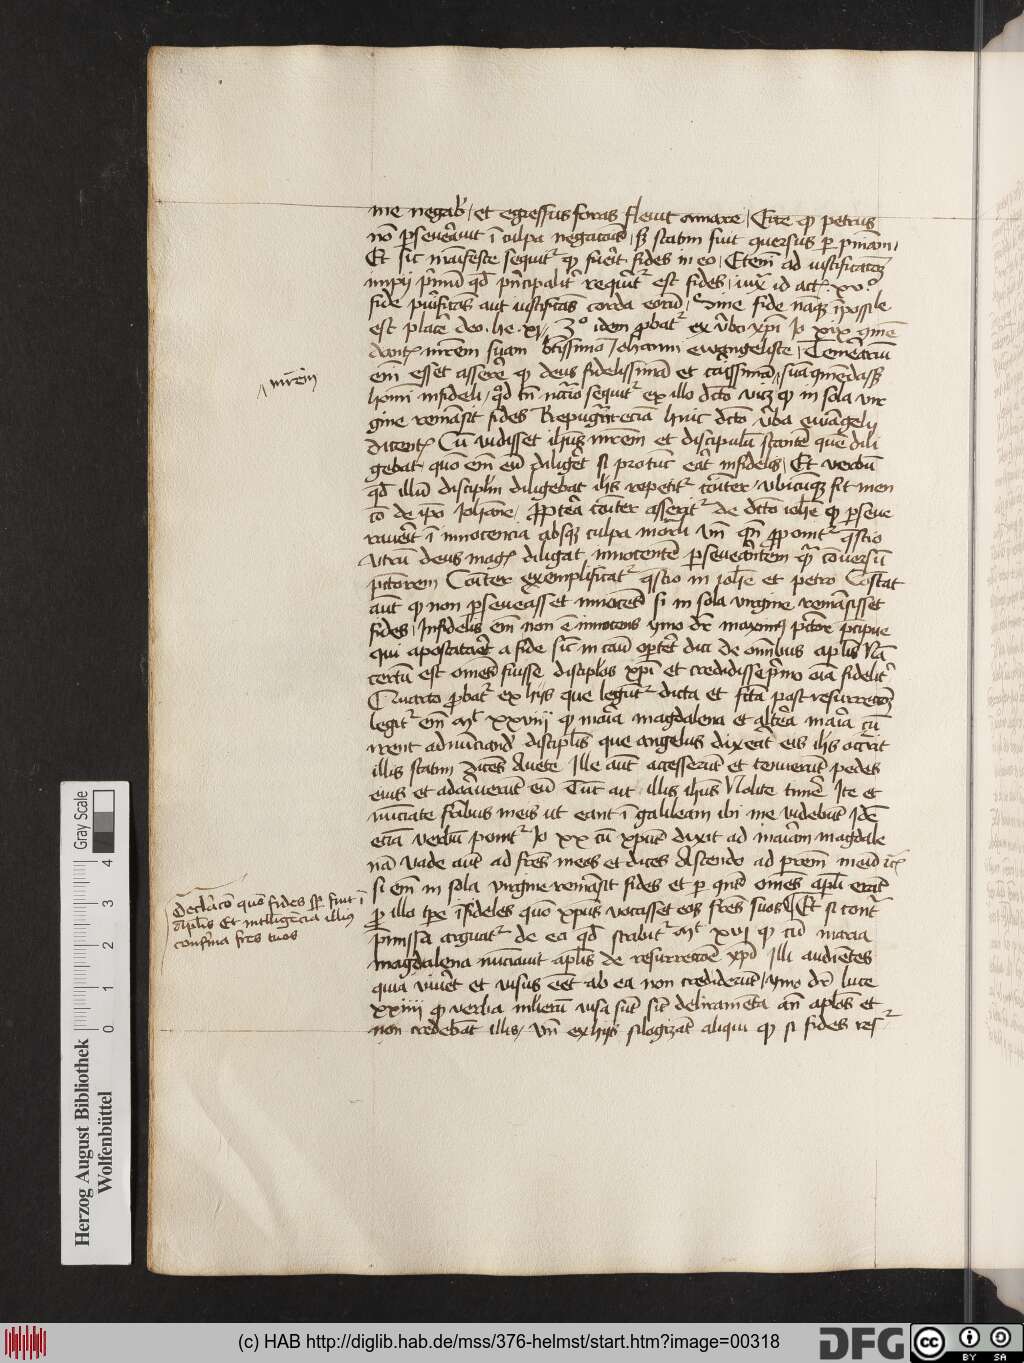 me negab̄ / et egressus foras flevit amare / Ecce q̄ petrus
nō p̄severavit ī culpa negacōis / sʒ statim fuit conversus p pn̄iam /
Et sic māifeste sequitʳ q̄ fuerit fides in eo / Etem̄ ad iustificacōeʒ
impij p̄mū qd̄ p̄ncipalit̄ requirit̄ est fides / iuxᵃ id act̄. xv.º
fide purificās aut iustificās corda eorū / Sine fide nāqʒ īpossibile
est placē deo. he. xj / 3º idem probatʳ ex v̄bo xp̄i Jo xix cōmē
dant̄ mr̄em suam b̄tissimo Johanni ewangeliste / Temerariū
em̄ esset asserē q̄ deus fidelissimā et cariss̄imā suā cōmēdass̄
homī infideli / qd̄ tn̄ nc̄ario sequitʳ ex illo dc̄to viʒ q̄ in sola vir
gine remāsit fides Repugnāt eciā huic dc̄to v̄ba ewāgelij
dicent̄ Cū vidisset ih̄us mr̄em et discipulū stantē quē dili
gebat / quō em̄ eū diliger̄t si pro tūc erāt infidelis / Et verbū
qd̄ illū discipl̄m diligebat ih̄s repetitʳ cōiter / ubicūqʒ fit men
cō de ip̄o Johāne / p̄pterea cōiter asseritʳ de dicto ioh̄e q̄ perseve
raverit ī innocencia absqʒ culpa mortali Vn̄ qn̄ p̄ponitʳ q̄stio
utrū deus maḡ diligat innocentē perseverātem qᵃ conversū
pctorem Cōiter exemplificatʳ q̄stio in ioh̄e et petro Constat
aut̄ q̄ non perseverasset innocēs si in sola virgine remāsisset
fides / Infidelis em̄ non ē innocens ymo dr̄ maximꝰ pctor p̄cipue
qui apostatavit a fide sic̄ in casu oportet dici de omībus aplis Nā
certū est omēs fuisse disciplos xp̄i et credidisse p̄mo oīa fidelit̄
Quarto probatʳ ex hijs que legūtʳ dicta et fc̄ta post resurrectōeʒ
legitʳ em̄ mᵗ xxviii q̄ maria magdalena et altera maria cū
irent ad nūciandū discipl̄is que angelus dixerat eis ih̄s occurrit
illis statim dicēs Avete Ille aut̄ accesserūt et tenuerūt pedes
eius et adoraverūt eū Tūc ait illis ih̄us Nolite timē Ite et
nūciate fratribus meis ut eant ī galileam ibi me videbūt Idē
eciā verbū ponitʳ Jo xx cū xp̄us dixit ad mariam magdale
nā vade aut̄ ad fr̄es meos et dices Ascendo ad p̄rem meū etc̄
si em̄ in sola virgine remāsit fides et p qn̄s omēs apli erāt
p illo tp̄e īfideles quō xp̄us vocasset eos fr̄es suos / Et si contʳ
p̄missa arguatʳ de eo qd̄ scribitʳ mᵗ xvi q̄ cū maria
magdalena nūciavit aplis de resurrectōe xp̄i Illi audiētes
quia viveret et visus eēt ab ea non crediderūt / ymo dr̄ luce
xxiiii q̄ verba mulierū visa sūt sic̄ deliramēta an̄ aplos et
non credebāt illis / Vn̄ ex hijs silogizāt aliqui q̄ si fides resʳ
^ mr̄em
Declaracō quō fides sp̄ fuit ī
aplis Et intelligēcia illius
confirma fr̄es tuos
Herzog August Bibliothek
Wolfenbüttel
0 1 2 3 4
Gray Scale
(c) HAB http://diglib.hab.de/mss/376-helmst/start.htm?image=00318
DFG
cc BY SA